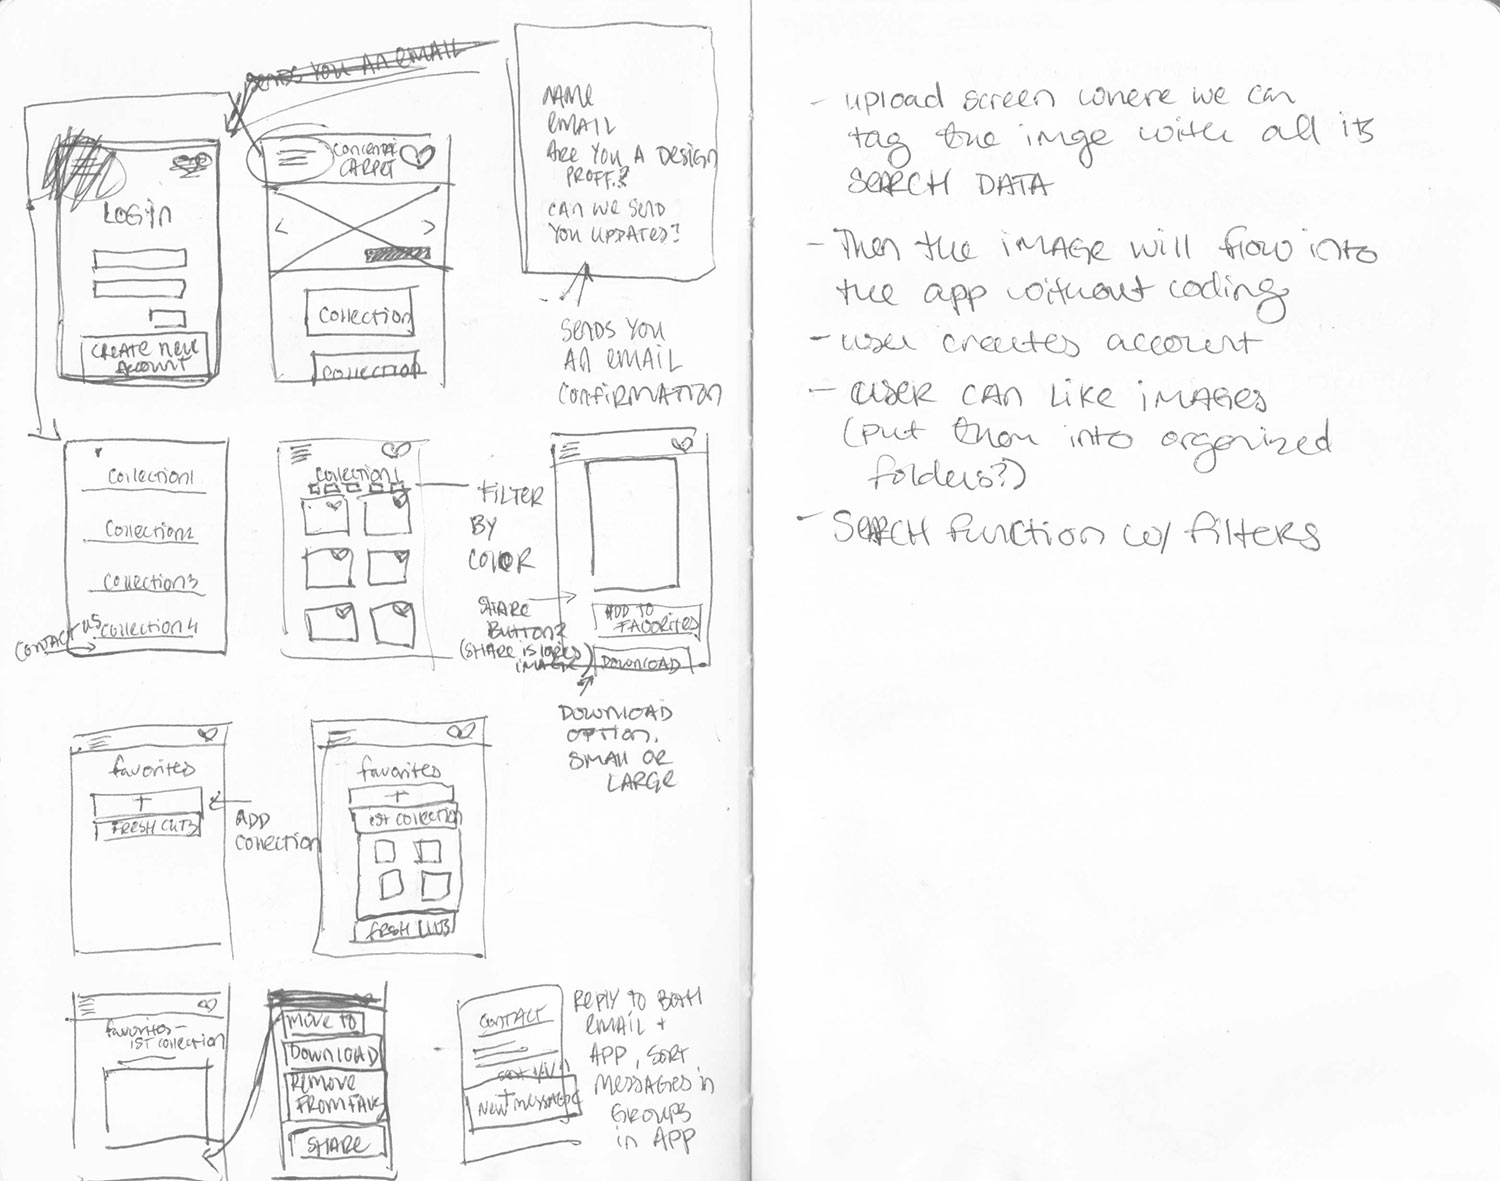 SENDS YOU AN EMAIL
LOGIN
CREATE NEW
ACCOUNT
CARPET
Collection
Collection
NAME
EMAIL
ARE YOU A DESIGN
PROFF.?
CAN WE SEND
YOU UPDATES?
SENDS YOU
AN EMAIL
CONFIRMATION
Collection1
Collection2
Collection3
Collection4
CONTACT US
Collection1
FILTER
BY
COLOR
SHARE
BUTTON?
(SHARE IS
IMAGE)
ADD TO
FAVORITES
DOWNLOAD
DOWNLOAD
OPTION,
SMALL OR
LARGE
favorites
+
FRESH CUTS
ADD
COLLECTION
favorites
+
1ST COLLECTION
FRESH CUTS
favorites -
1ST collection
MOVE TO
DOWNLOAD
REMOVE
FROM FAVS
SHARE
CONTACT
NEW MESSAGE
REPLY TO BOTH
EMAIL +
APP, SORT
MESSAGES IN
GROUPS
IN APP
- upload screen where we can
tag the imge with all its
SEARCH DATA
- Then the IMAGE will flow into
the app without coding
- user creates account
- USER CAN LIKE IMAGES
(put them into organized
folders?)
- SEARCH function w/ filters